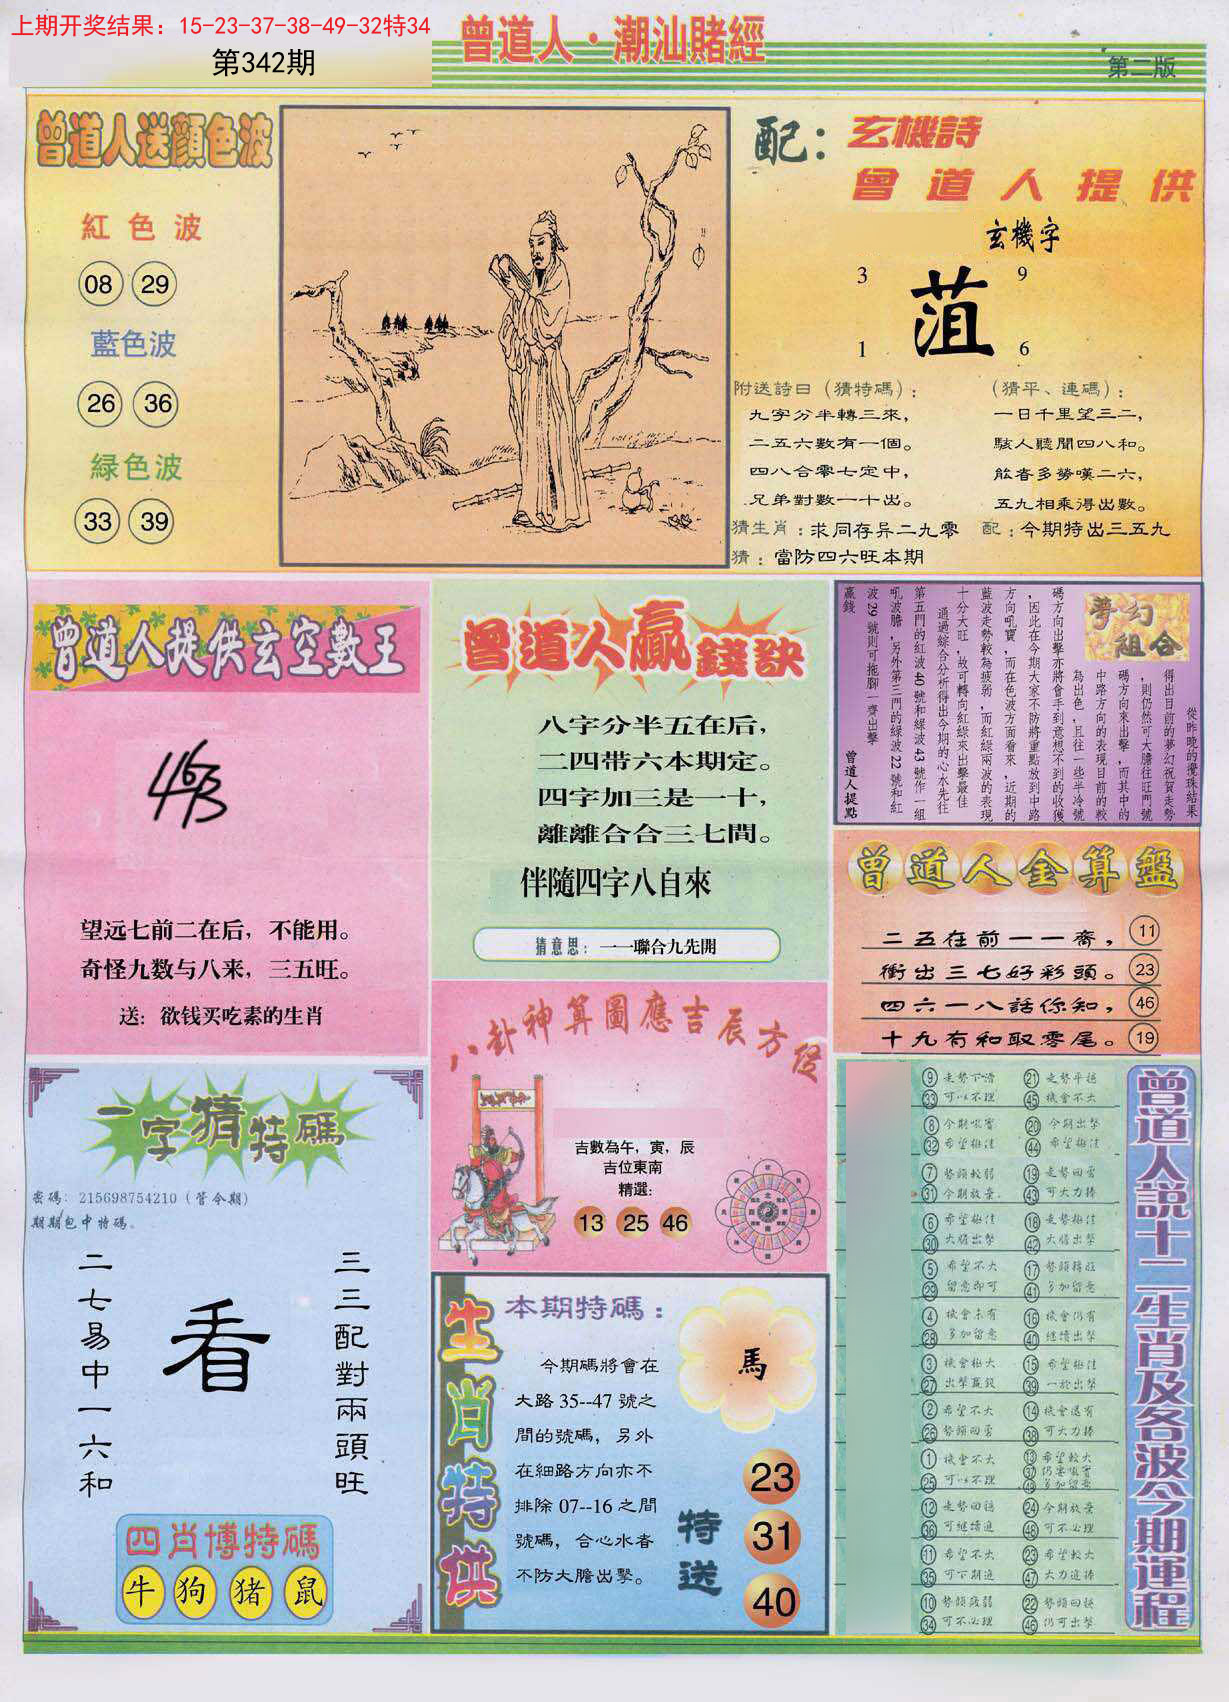 上期开奖结果：15-23-37-38-49-32特34
第342期
曾道人·潮汕賭經
第二版
曾道人送顏色波
紅色波
08 29
藍色波
26 36
緑色波
33 39
配：玄機詩
曾道人提供
玄機字
3 9
菹
1 6
附送詩曰（猜特碼）：
九字分半轉三來，
二五六數有一個。
四八合零七定中，
兄弟對數一十出。
（猜平、連碼）：
一日千里望三二，
駭人聽聞四八和。
能者多勞嘆二六，
五九相乘得出數。
猜生肖：求同存异二九零
配：今期特出三五九
猜：當防四六旺本期
曾道人提供玄空數王
463
望远七前二在后，不能用。
奇怪九数与八来，三五旺。
送：欲钱买吃素的生肖
曾道人贏錢訣
八字分半五在后，
二四带六本期定。
四字加三是一十，
離離合合三七間。
伴隨四字八自來
猜意思：一一聯合九先開
夢幻組合
從昨晚的攪珠結果
得出目前的夢幻祝賀走勢
，則仍然可大膽往旺門號
碼方向來出擊，而其中的
中路方向的表現目前的較
為出色，且往一些半冷號
碼方向出擊亦將會手到意想不到的收獲
，因此在今期大家不防將重點放到中路
方向吼寶，而在色波方面看來，近期的
藍波走勢較為疲弱，而紅綠兩波的表現
十分大旺，故可轉向紅綠來出擊最佳
通過綜合分析得出今期的心水先往
第五門的紅波40號和緑波43號作一組
吼波膽，另外第三門的綠波22號和紅
波29號則可拖腳一齊出擊
贏錢
曾道人提點
曾道人金算盤
二五在前一一齊， 11
衝出三七好彩頭。 23
四六一八話你知， 46
十九有和取零尾。 19
八卦神算圖應吉辰方位
吉數為午，寅，辰
吉位東南
精選：
13 25 46
一字猜特碼
密碼：215698754210（管今期）
期期包中特碼。
二七易中一六和
看
三三配對兩頭旺
四肖博特碼
牛 狗 猪 鼠
生肖特供
本期特碼：
今期碼將會在
大路35--47號之
間的號碼，另外
在細路方向亦不
排除07--16之間
號碼，合心水者
不防大膽出擊。
馬
特送
23
31
40
曾道人説十二生肖及各波今期運程
⑨ 走勢下滑 ㉑ 走勢平穩
㉝ 可以不理 ㊺ 機會不大
⑧ 今期吸實 ⑳ 今期出擊
㉜ 希望極佳 ㊹ 希望極佳
⑦ 勢頭較弱 ⑲ 走勢回勇
㉛ 今期放棄 ㊸ 可大力捧
⑥ 希望極佳 ⑱ 走勢極佳
㉚ 大膽出擊 ㊷ 大膽出擊
⑤ 希望不大 ⑰ 勢頭轉旺
㉙ 留意即可 ㊶ 多加留意
④ 機會未有 ⑯ 機會仍有
㉘ 多加留意 ㊵ 繼續出擊
③ 機會極大 ⑮ 希望極佳
㉗ 出擊贏錢 ㊴ 一於出擊
② 希望不大 ⑭ 機會還有
㉖ 勢頭回勇 ㊳ 可大力捧
① 機會不大 ⑬ 希望較大
㉕ 可以不理 ㊲ 仍要吸實
㊾ 多加留意
⑫ 走勢回穩 ㉔ 今期放棄
㊱ 可繼續追 ㊽ 可不必理
⑪ 希望不大 ㉓ 希望較大
㉟ 可下期追 ㊼ 大力追捧
⑩ 勢頭疲弱 ㉒ 勢頭回穩
㉞ 可不必理 ㊻ 仍可出擊